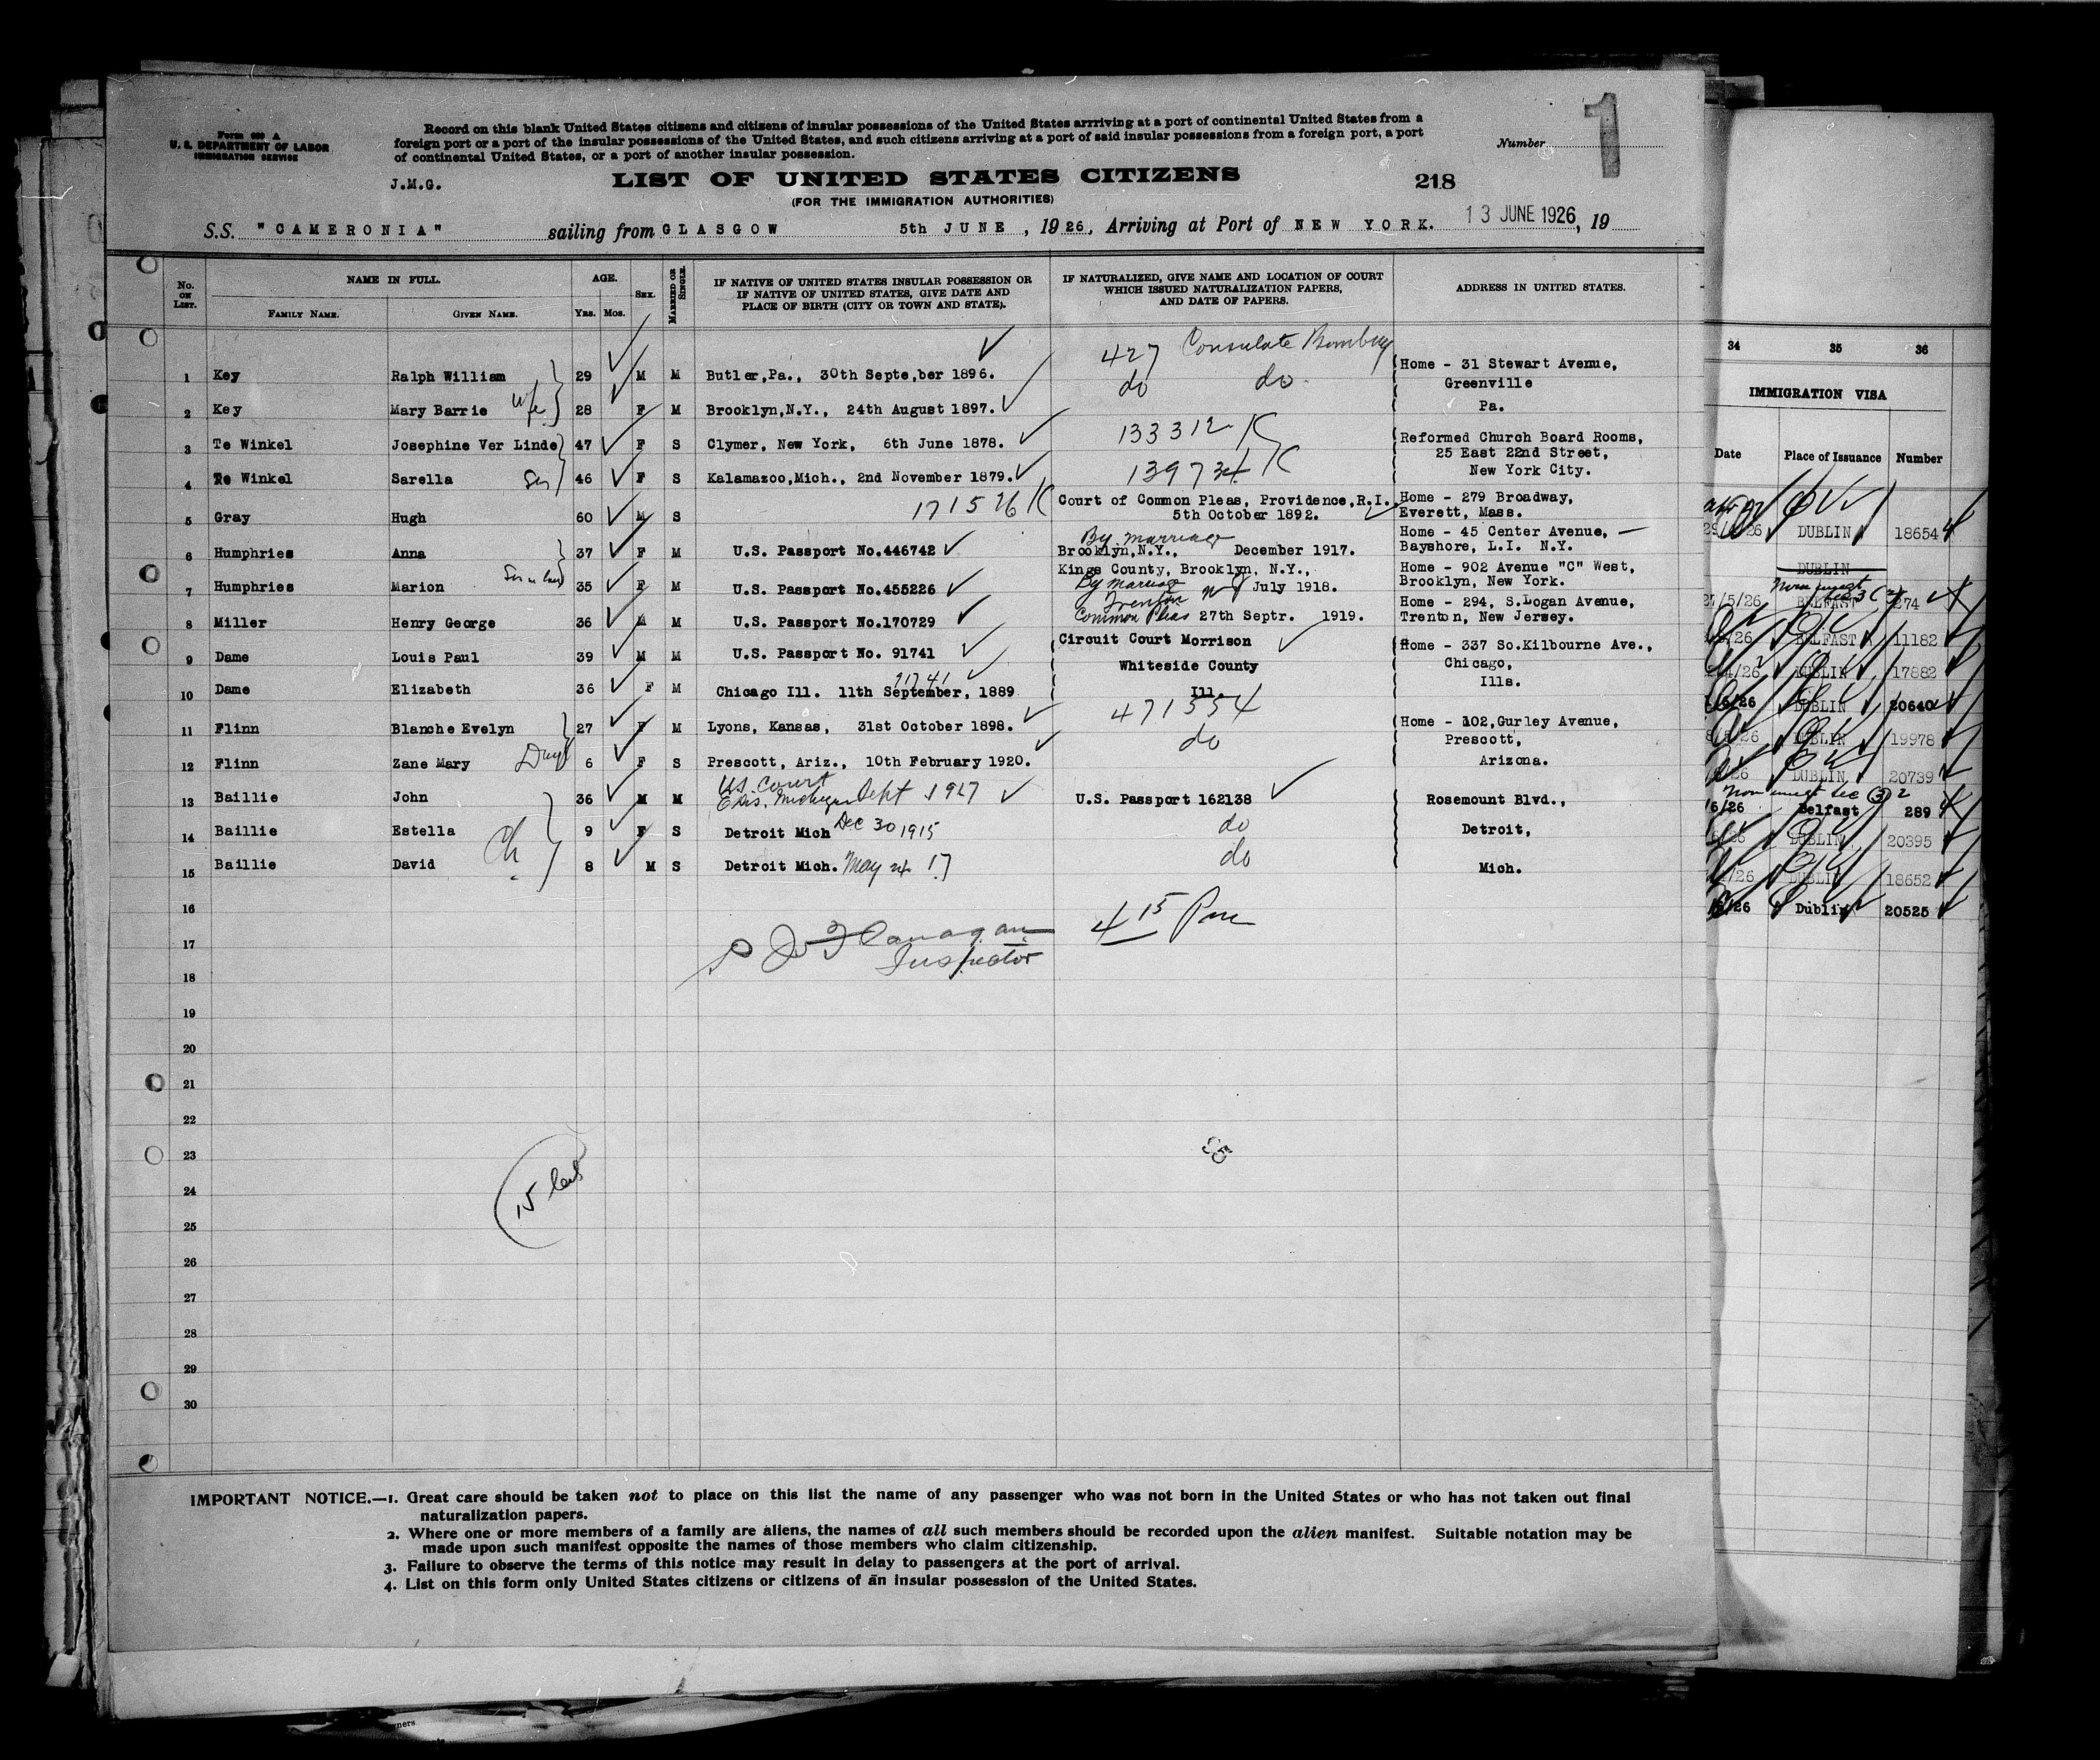 Form 630 A
U. S. DEPARTMENT OF LABOR
IMMIGRATION SERVICE
Record on this blank United States citizens and citizens of insular possessions of the United States arrriving at a port of continental United States from a
foreign port or a port of the insular possessions of the United States, and such citizens arriving at a port of said insular possessions from a foreign port, a port
of continental United States, or a port of another insular possession.
Number 1
J.M.G.
LIST OF UNITED STATES CITIZENS
218
(FOR THE IMMIGRATION AUTHORITIES)
S.S. "CAMERONIA" sailing from GLASGOW 5th JUNE, 1926, Arriving at Port of NEW YORK. 13 JUNE 1926, 19
No. ON LIST.
NAME IN FULL.
FAMILY NAME. GIVEN NAME.
AGE.
YRS. MOS.
SEX.
MARRIED OR SINGLE.
IF NATIVE OF UNITED STATES INSULAR POSSESSION OR
IF NATIVE OF UNITED STATES, GIVE DATE AND
PLACE OF BIRTH (CITY OR TOWN AND STATE).
IF NATURALIZED, GIVE NAME AND LOCATION OF COURT
WHICH ISSUED NATURALIZATION PAPERS,
AND DATE OF PAPERS.
ADDRESS IN UNITED STATES.
427 Consulate Bombay
1 Key Ralph William 29 M M Butler,Pa., 30th Septe,ber 1896. Home - 31 Stewart Avenue,
do do
Greenville
2 Key Mary Barrie wife 28 F M Brooklyn,N.Y., 24th August 1897. Pa.
3 Te Winkel Josephine Ver Linde 47 F S Clymer, New York, 6th June 1878. 133312 K Reformed Church Board Rooms,
25 East 22nd Street,
4 Te Winkel Sarella Sis 46 F S Kalamazoo,Mich., 2nd November 1879. 139734 K New York City.
5 Gray Hugh 60 M S 171526 K Court of Common Pleas, Providence,R.I., Home - 279 Broadway,
5th October 1892. Everett, Mass.
6 Humphries Anna 37 F M U.S. Passport No.446742 By marriage Home - 45 Center Avenue, —
Brooklyn,N.Y., December 1917. Bayshore, L.I. N.Y.
Kings County, Brooklyn, N.Y., Home - 902 Avenue "C" West,
7 Humphries Marion Sis in law 35 F M U.S. Passport No.455226 By marriage July 1918. Brooklyn, New York.
Trenton NJ Home - 294, S.Logan Avenue,
8 Miller Henry George 36 M M U.S. Passport No.170729 Common Pleas 27th Septr. 1919. Trenton, New Jersey.
9 Dame Louis Paul 39 M M U.S. Passport No. 91741 Circuit Court Morrison Home - 337 So.Kilbourne Ave.,
Whiteside County Chicago,
91741
10 Dame Elizabeth 36 F M Chicago Ill. 11th September, 1889 Ill. Ills.
11 Flinn Blanche Evelyn 27 F M Lyons, Kansas, 31st October 1898. 471554 Home - 102,Gurley Avenue,
do Prescott,
12 Flinn Zane Mary Daug 6 F S Prescott, Ariz., 10th February 1920. Arizona.
U.S. Court
13 Baillie John 36 M M E Dis, Michigan Sept 1917 U.S. Passport 162138 Rosemount Blvd.,
14 Baillie Estella 9 F S Detroit Mich Dec 30 1915 do Detroit,
Ch
15 Baillie David 8 M S Detroit Mich. May 24 17 do Mich.
16
4 15 Pm
17
Flanagan
Inspector
18
19
20
21
22
23
24
25
26
27
28
29
30
15
IMPORTANT NOTICE.—1. Great care should be taken not to place on this list the name of any passenger who was not born in the United States or who has not taken out final
naturalization papers.
2. Where one or more members of a family are aliens, the names of all such members should be recorded upon the alien manifest. Suitable notation may be
made upon such manifest opposite the names of those members who claim citizenship.
3. Failure to observe the terms of this notice may result in delay to passengers at the port of arrival.
4. List on this form only United States citizens or citizens of an insular possession of the United States.
34 35 36
IMMIGRATION VISA
Date Place of Issuance Number
DUBLIN 18654
DUBLIN
/5/26 BELFAST 274
/26 BELFAST 11182
/26 DUBLIN 17882
/26 DUBLIN 20640
/26 DUBLIN 19978
/26 DUBLIN 20739
/6/26 Belfast 289
/26 DUBLIN 20395
/26 DUBLIN 18652
/26 Dublin 20525